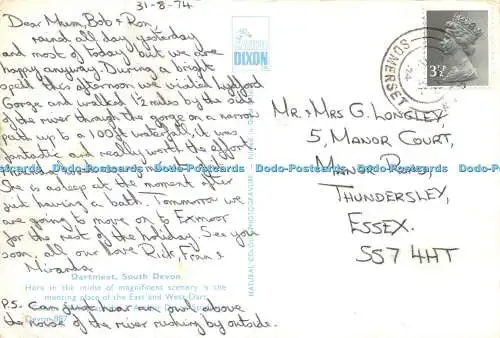 31-8-74
Dear Mum, Bob & Ron,
rained all day yesterday
and most of today but we are
happy anyway. During a bright
spell this afternoon we visited Lydford
Gorge and walked 1½ miles by the side
of the river through the gorge on a narrow
path up to a 100ft waterfall, it was
fantastic and really worth the effort.
Miranda
She is asleep at the moment after
just having a bath. Tomorrow we
are going to move on to Exmoor
for the rest of the holiday. See you
soon, all our love Rich, Fran &
Miranda
Dartmeet, South Devon
Here in the midst of magnificent scenery is the
meeting place of the East and West Dart
P.S. Can just hear an owl above
the noise of the river rushing by outside.
DIXON
NATURAL COLOUR PHOTOGRAPH
3½P
SOMERSET
Mr. & Mrs G. Longley
5, Manor Court,
Manor Road,
Thundersley,
Essex.
SS7 4HT
Dodo-Postcards Dodo-Postcards Dodo-Postcards Dodo-Postcards Dodo-Postcards